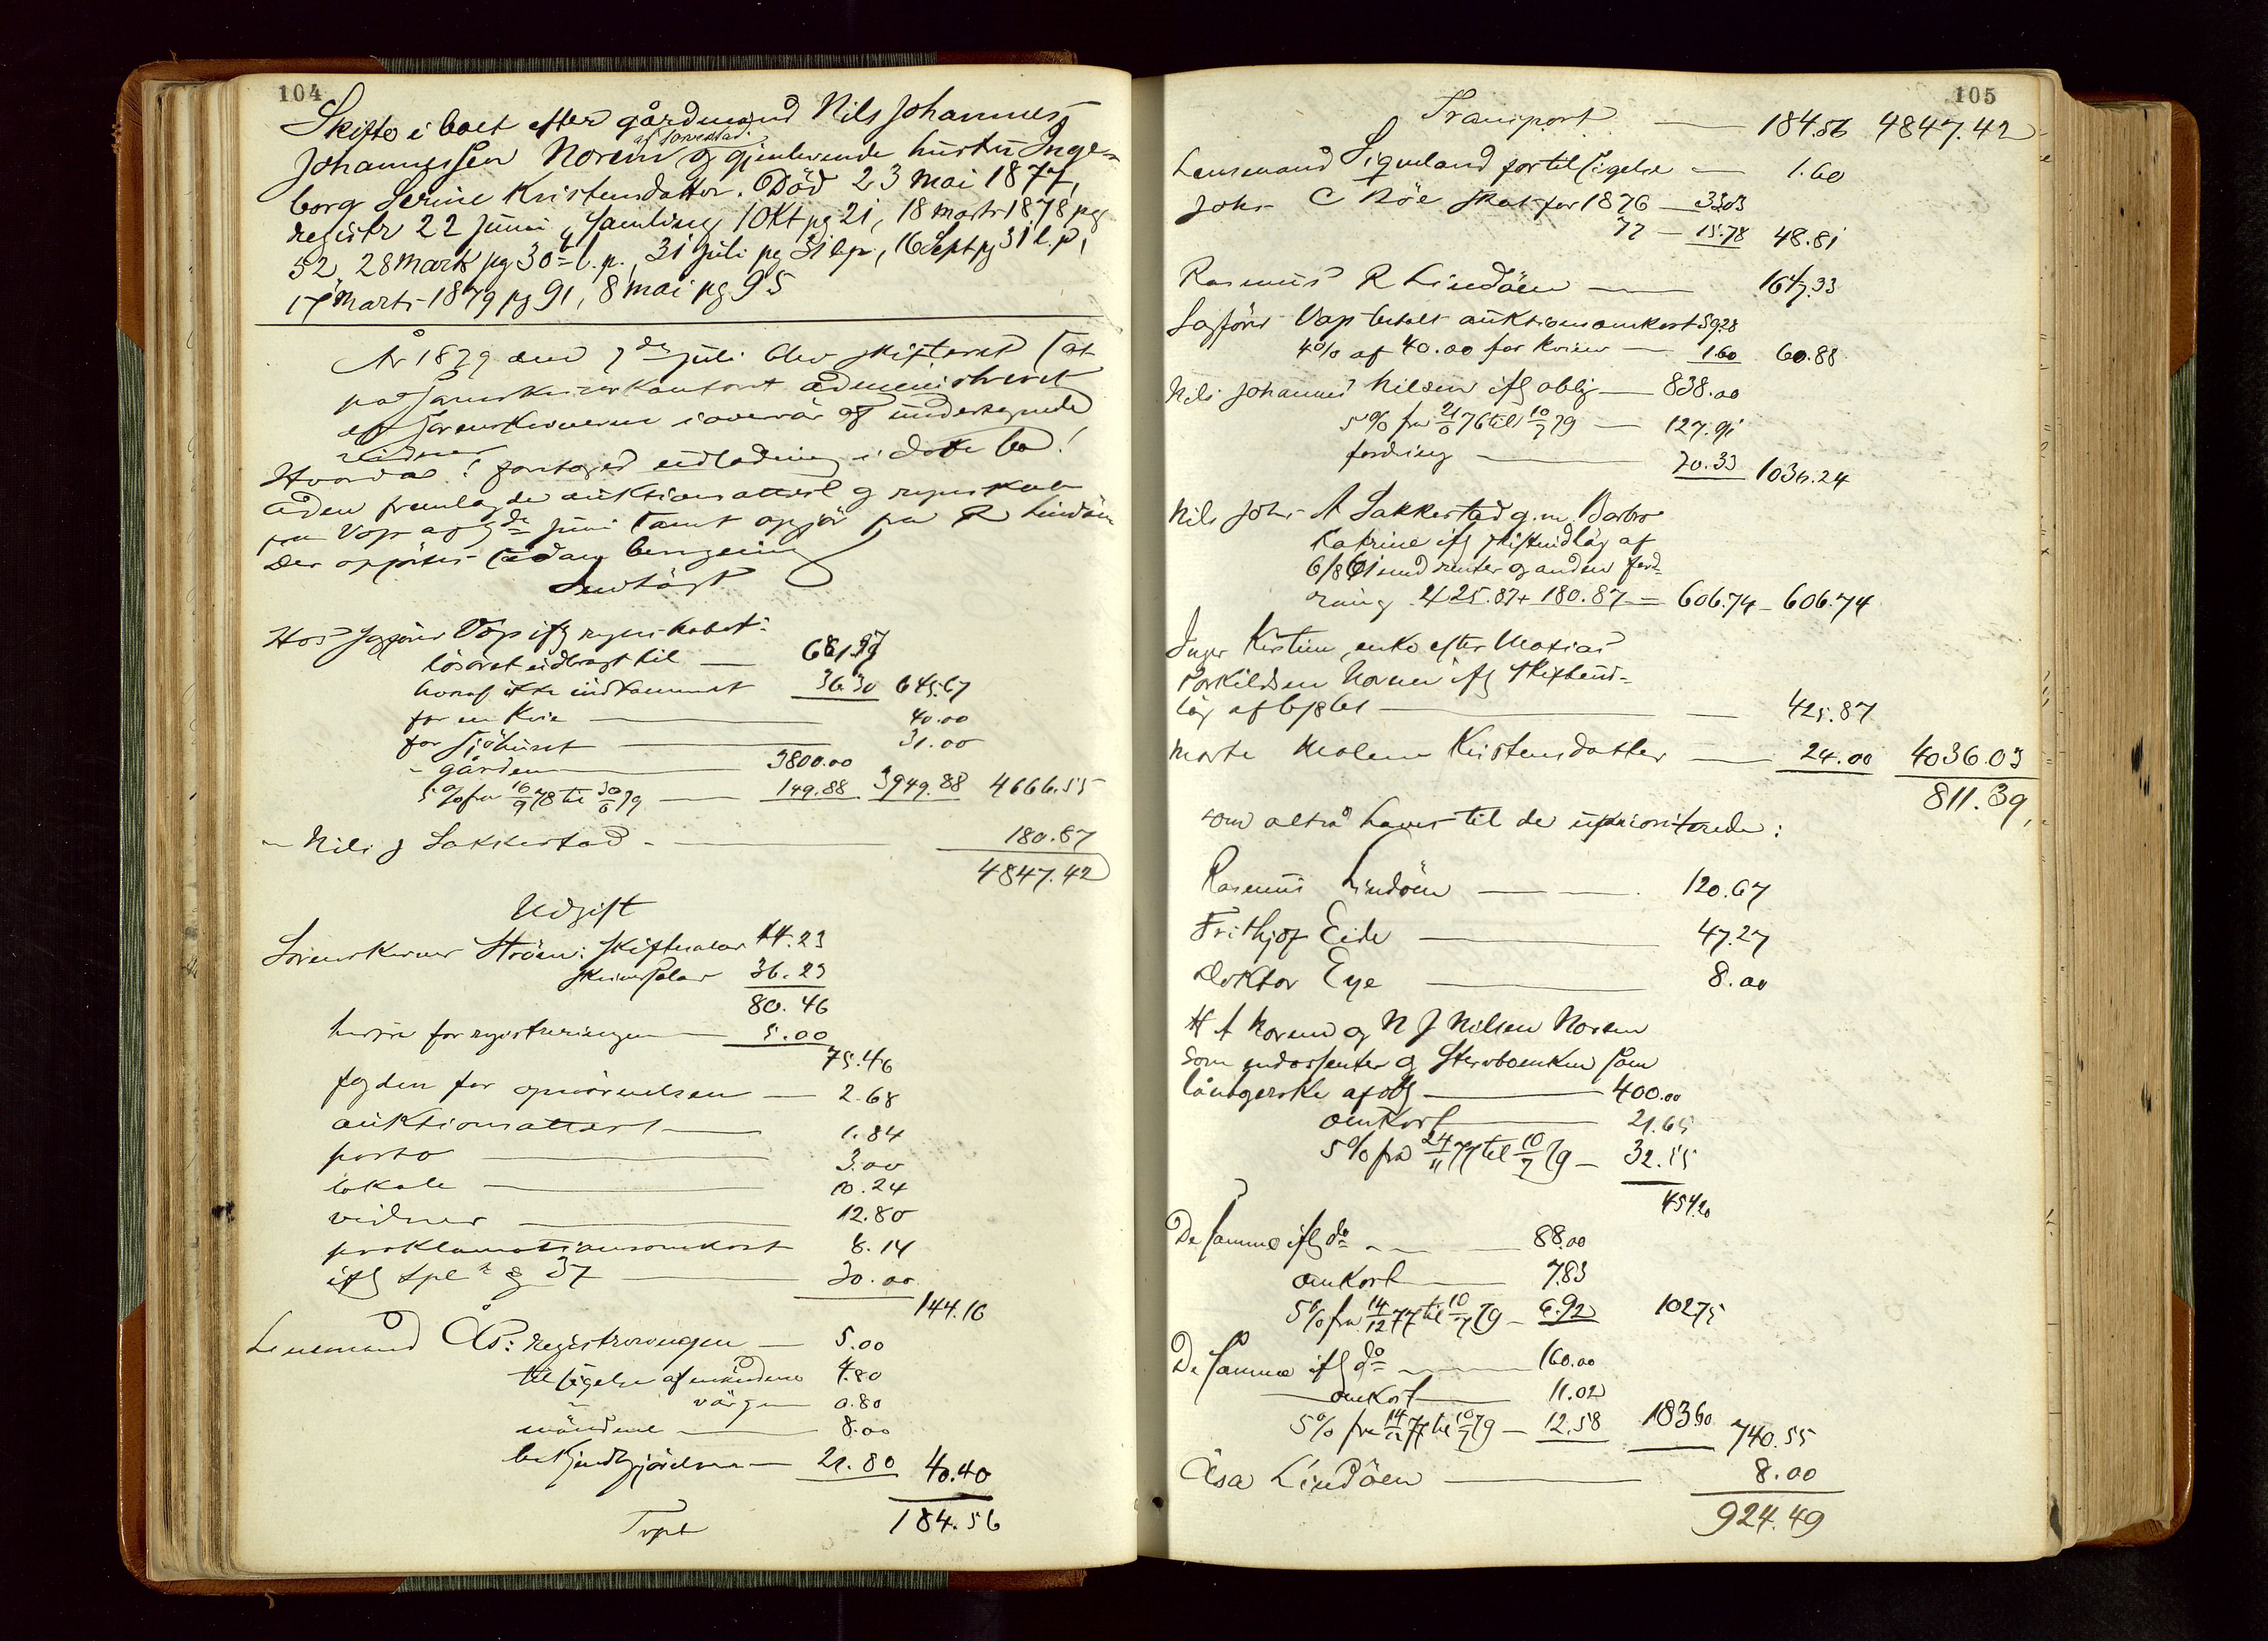 104
Skifte i boet efter gårdmand Nils Johannes
af Torvestad
Johannessen Norem og gjenlevende hustru Inge-
borg Serine Kristensdatter. Död 23 mai 1877,
registr 22 juni, Samling 1 Okt pg 21, 18 marts 1878 pg
52, 28 mark pg 30 l.p., 31 juli pg 31 l.p., 16 Sept pg 31 l.p,
17 marts 1879 pg 91, 8 mai pg 95
År 1879 den 7de juli blev skifteret sat
paa Sorenskriverkontoret administreret
af Sorenskriveren i overvär af undertegnede
vidner
Hvorda! foretoges udlodning i dette bo!
fremlagde auktionsattest og regnskab
fra Vop af juni samt opgjör fra R Lindöen
Der opgjøres sådan beregning
Indtägt
Hos Sagförer Vop ifg regnskabet:
lösöret udbragt til — 681.97
hvoraf ikke indkommet 36.30 645.67
for en Kvie — 40.00
for sjöhuset — 31.00
" gården — 3800.00
5 % fra 16/9 78 til 30/6 79 — 149.88 3949.88 4666.55
" Nils J Sakkestad — 180.87
4847.42
Udgift
Sorenskriver Ström: Skiftesalar 44.23
Skriversalar 36.23
80.46
for registreringen — 5.00
75.46
fogden for opnävnelsen — 2.68
auktionsattest — 1.84
porto — 3.00
lokale — 10.24
vidner — 12.80
proklamationsomkost 8.14
ifg Spl § 37 — 30.00
144.16
Lensmand Ås: registreringen — 5.00
tilsigelse af mändene 4.80
" värgen 0.80
mändene — 8.00
bekjendtgjörelser — 21.80 40.40
Trpt 184.56
105
Transport — 184.56 4847.42
Lensmand Siqveland for tilsigelse — 1.60
Johs C Böe skat for 1876 — 33.03
77 — 15.78 48.81
Rasmus R Lindöen — 1647.33
Sagförer Vop betalt auktionsomkost 59.28
4% af 40.00 for kvien — 1.60 60.88
Nils Johannes Nilsen ifg oblig — 838.00
5% fra 21/6 76 til 10/7 79 — 127.91
fordring — 70.33 1036.24
Nils Johs A Sakkestad g.m. Barbro
Katrine ifg skifteudläg af
6/8 61 med renter og anden ford-
ring 425.87 + 180.87 = 606.74 — 606.74
Inger Kirstine, enke efter Matias
Torkildsen Norem ifg skifteud-
läg af 6/8 61 — 425.87
Marte Malene Kristensdatter — 24.00 4036.03
811.39,
som altså haves til de upriotiterede:
Rasmus Lindöen — 120.67
Frithjof Eide — 47.27
Doktor Eye — 8.00
H A Norem og N J Nilsen Norem
som endossenter og Stervboenken som
låntgerske af obl — 400.00
omkost — 21.65
5% fra 24/11 77 til 10/7 79 — 32.55
454.20
De samme ifg do — 88.00
omkost — 7.83
5% fra 14/12 77 til 10/7 79 — 6.92 102.75
De samme ifg do — 160.00
omkost — 11.02
5% fra 14/12 77 til 10/7 79 — 12.58 183.60 740.55
Åsa Lindöen — 8.00
924.49